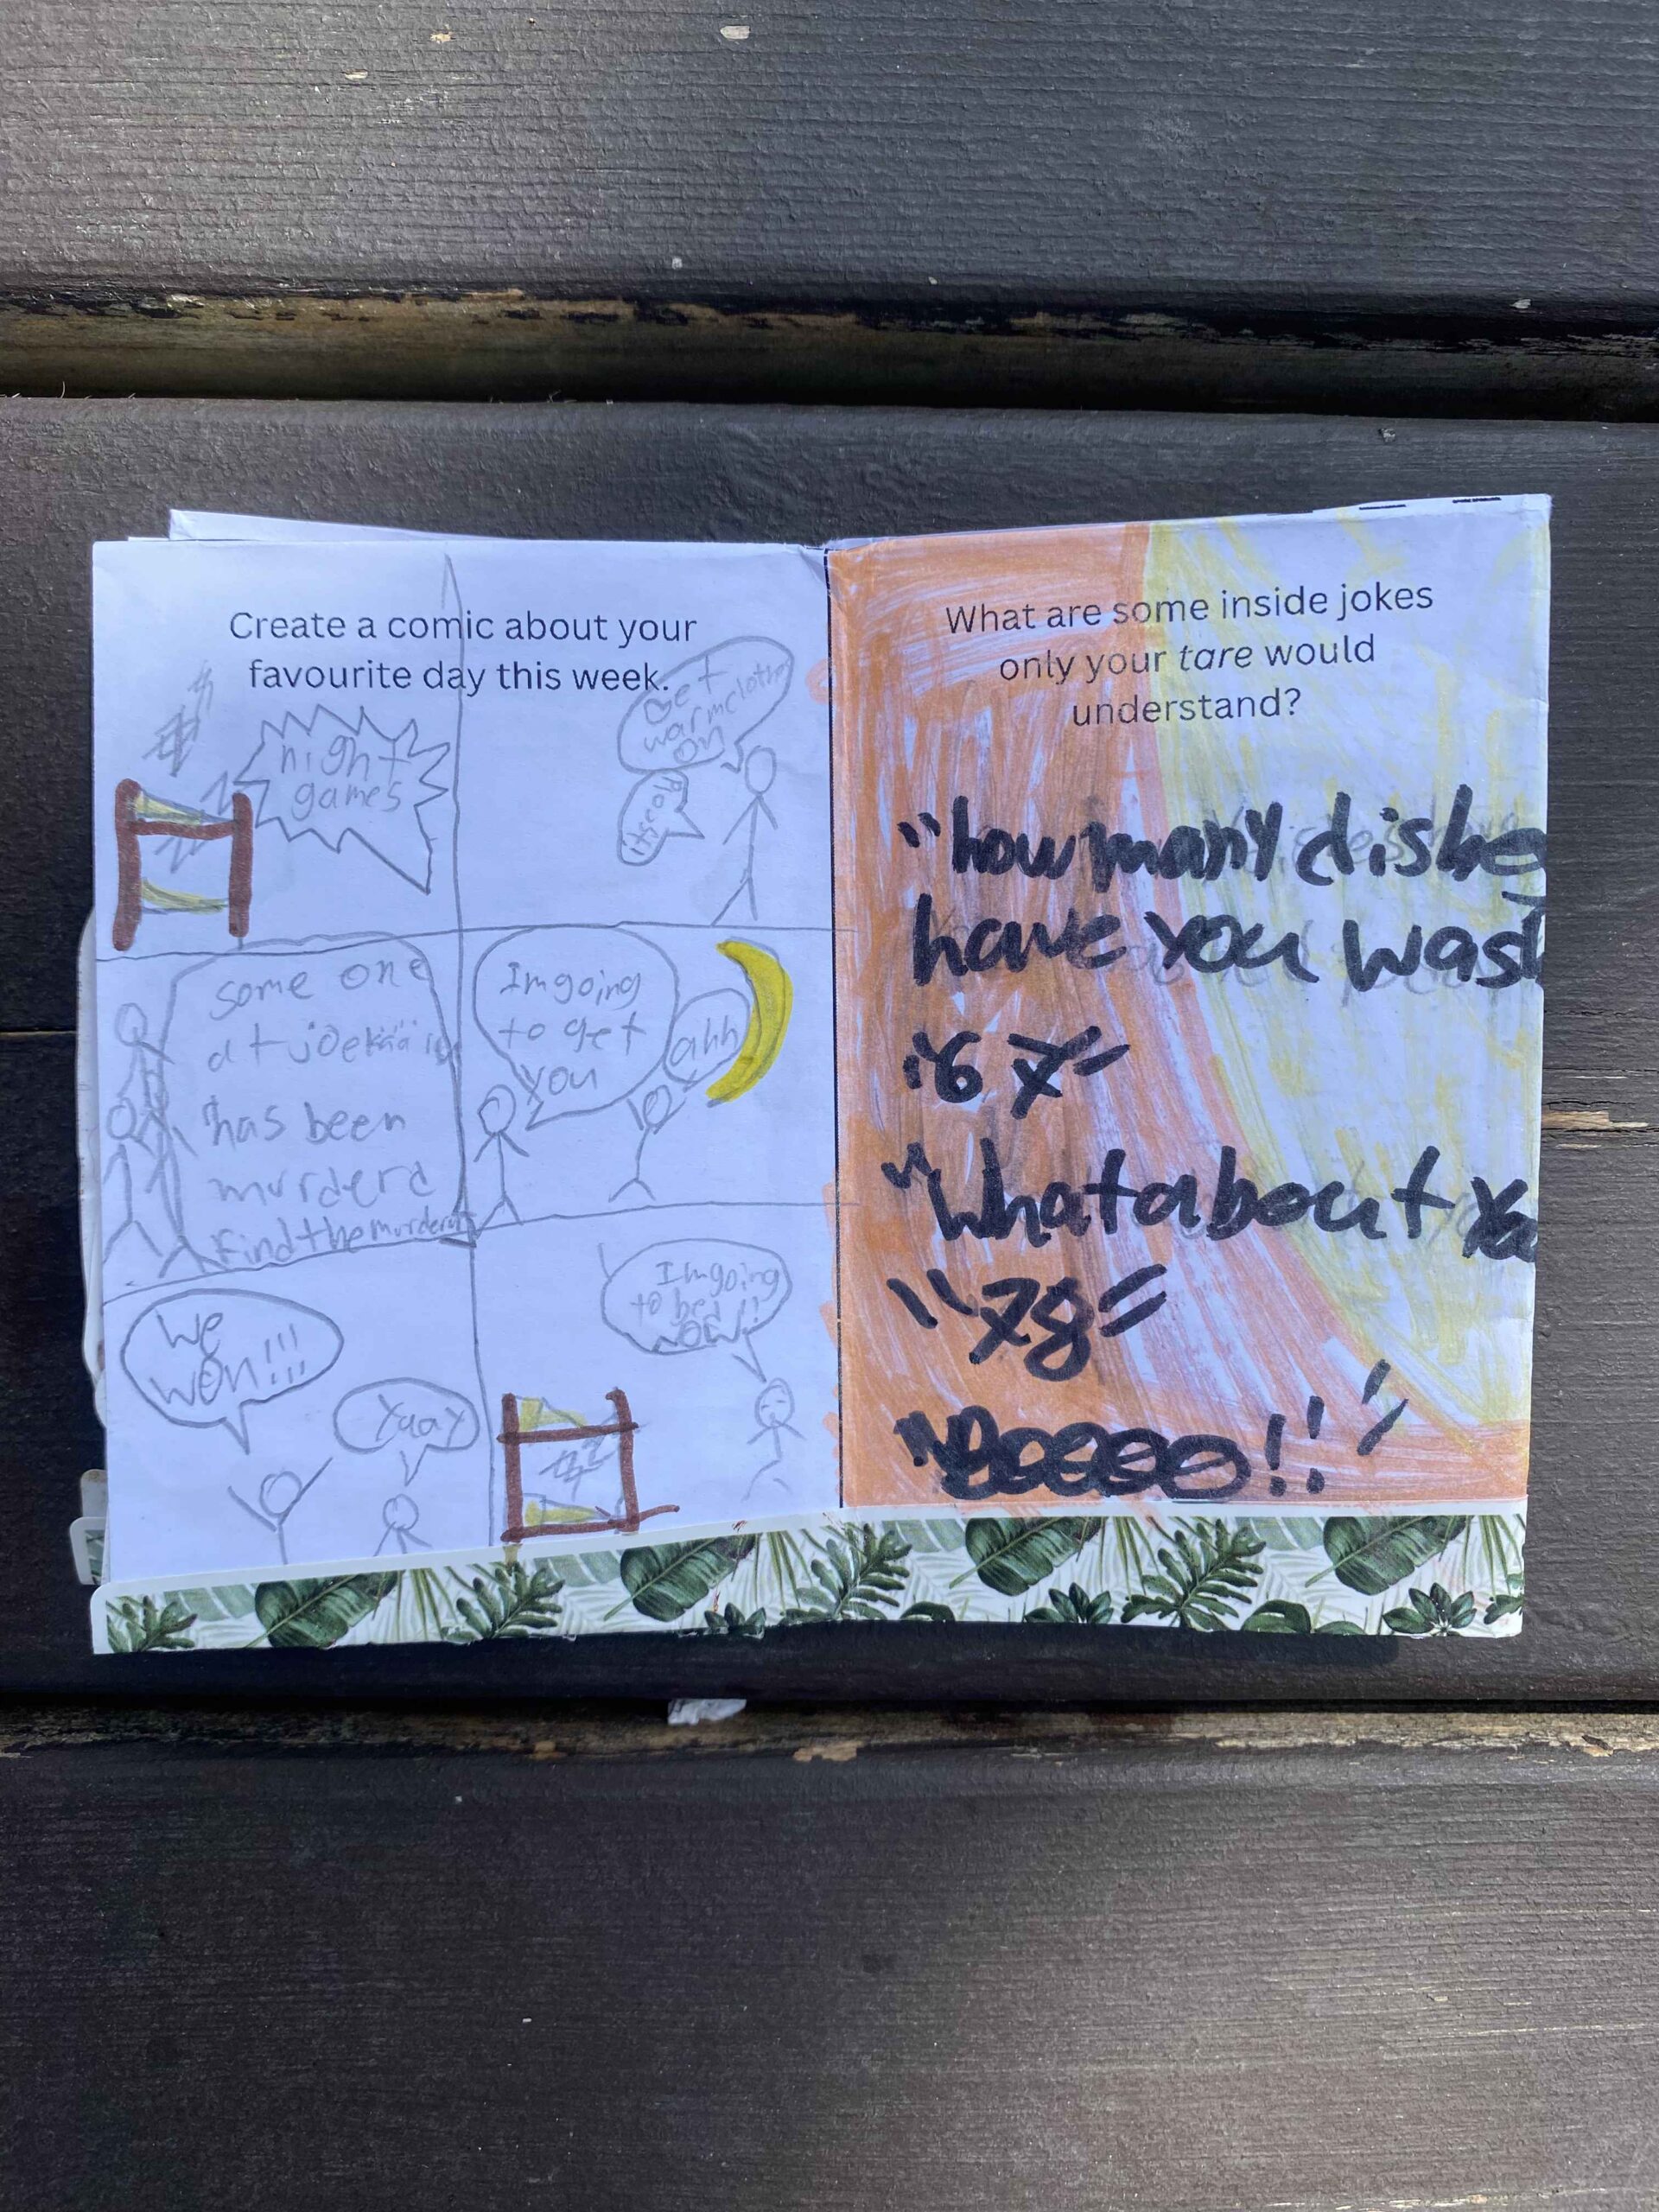 Create a comic about your
favourite day this week.
night
games
Get
warm clothe
on
some one
at joe
has been
murderd
Find the murderur
Im going
to get
you
ahh
We
won!!!
Yaay
Im going
to bed
NOW!!
What are some inside jokes
only your tare would
understand?
"how many dishe
have you wash
"67"
"What about yo
"78"
"Boooo!!"